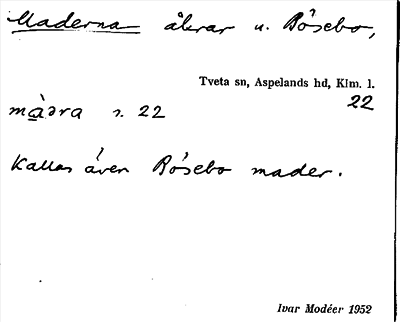 Maderna åkrar u. Bôsebo,
Tveta sn, Aspelands hd, Klm. l.
22
màəra s. 22
Kallas även Bôsebo mader.
Ivar Modéer 1952